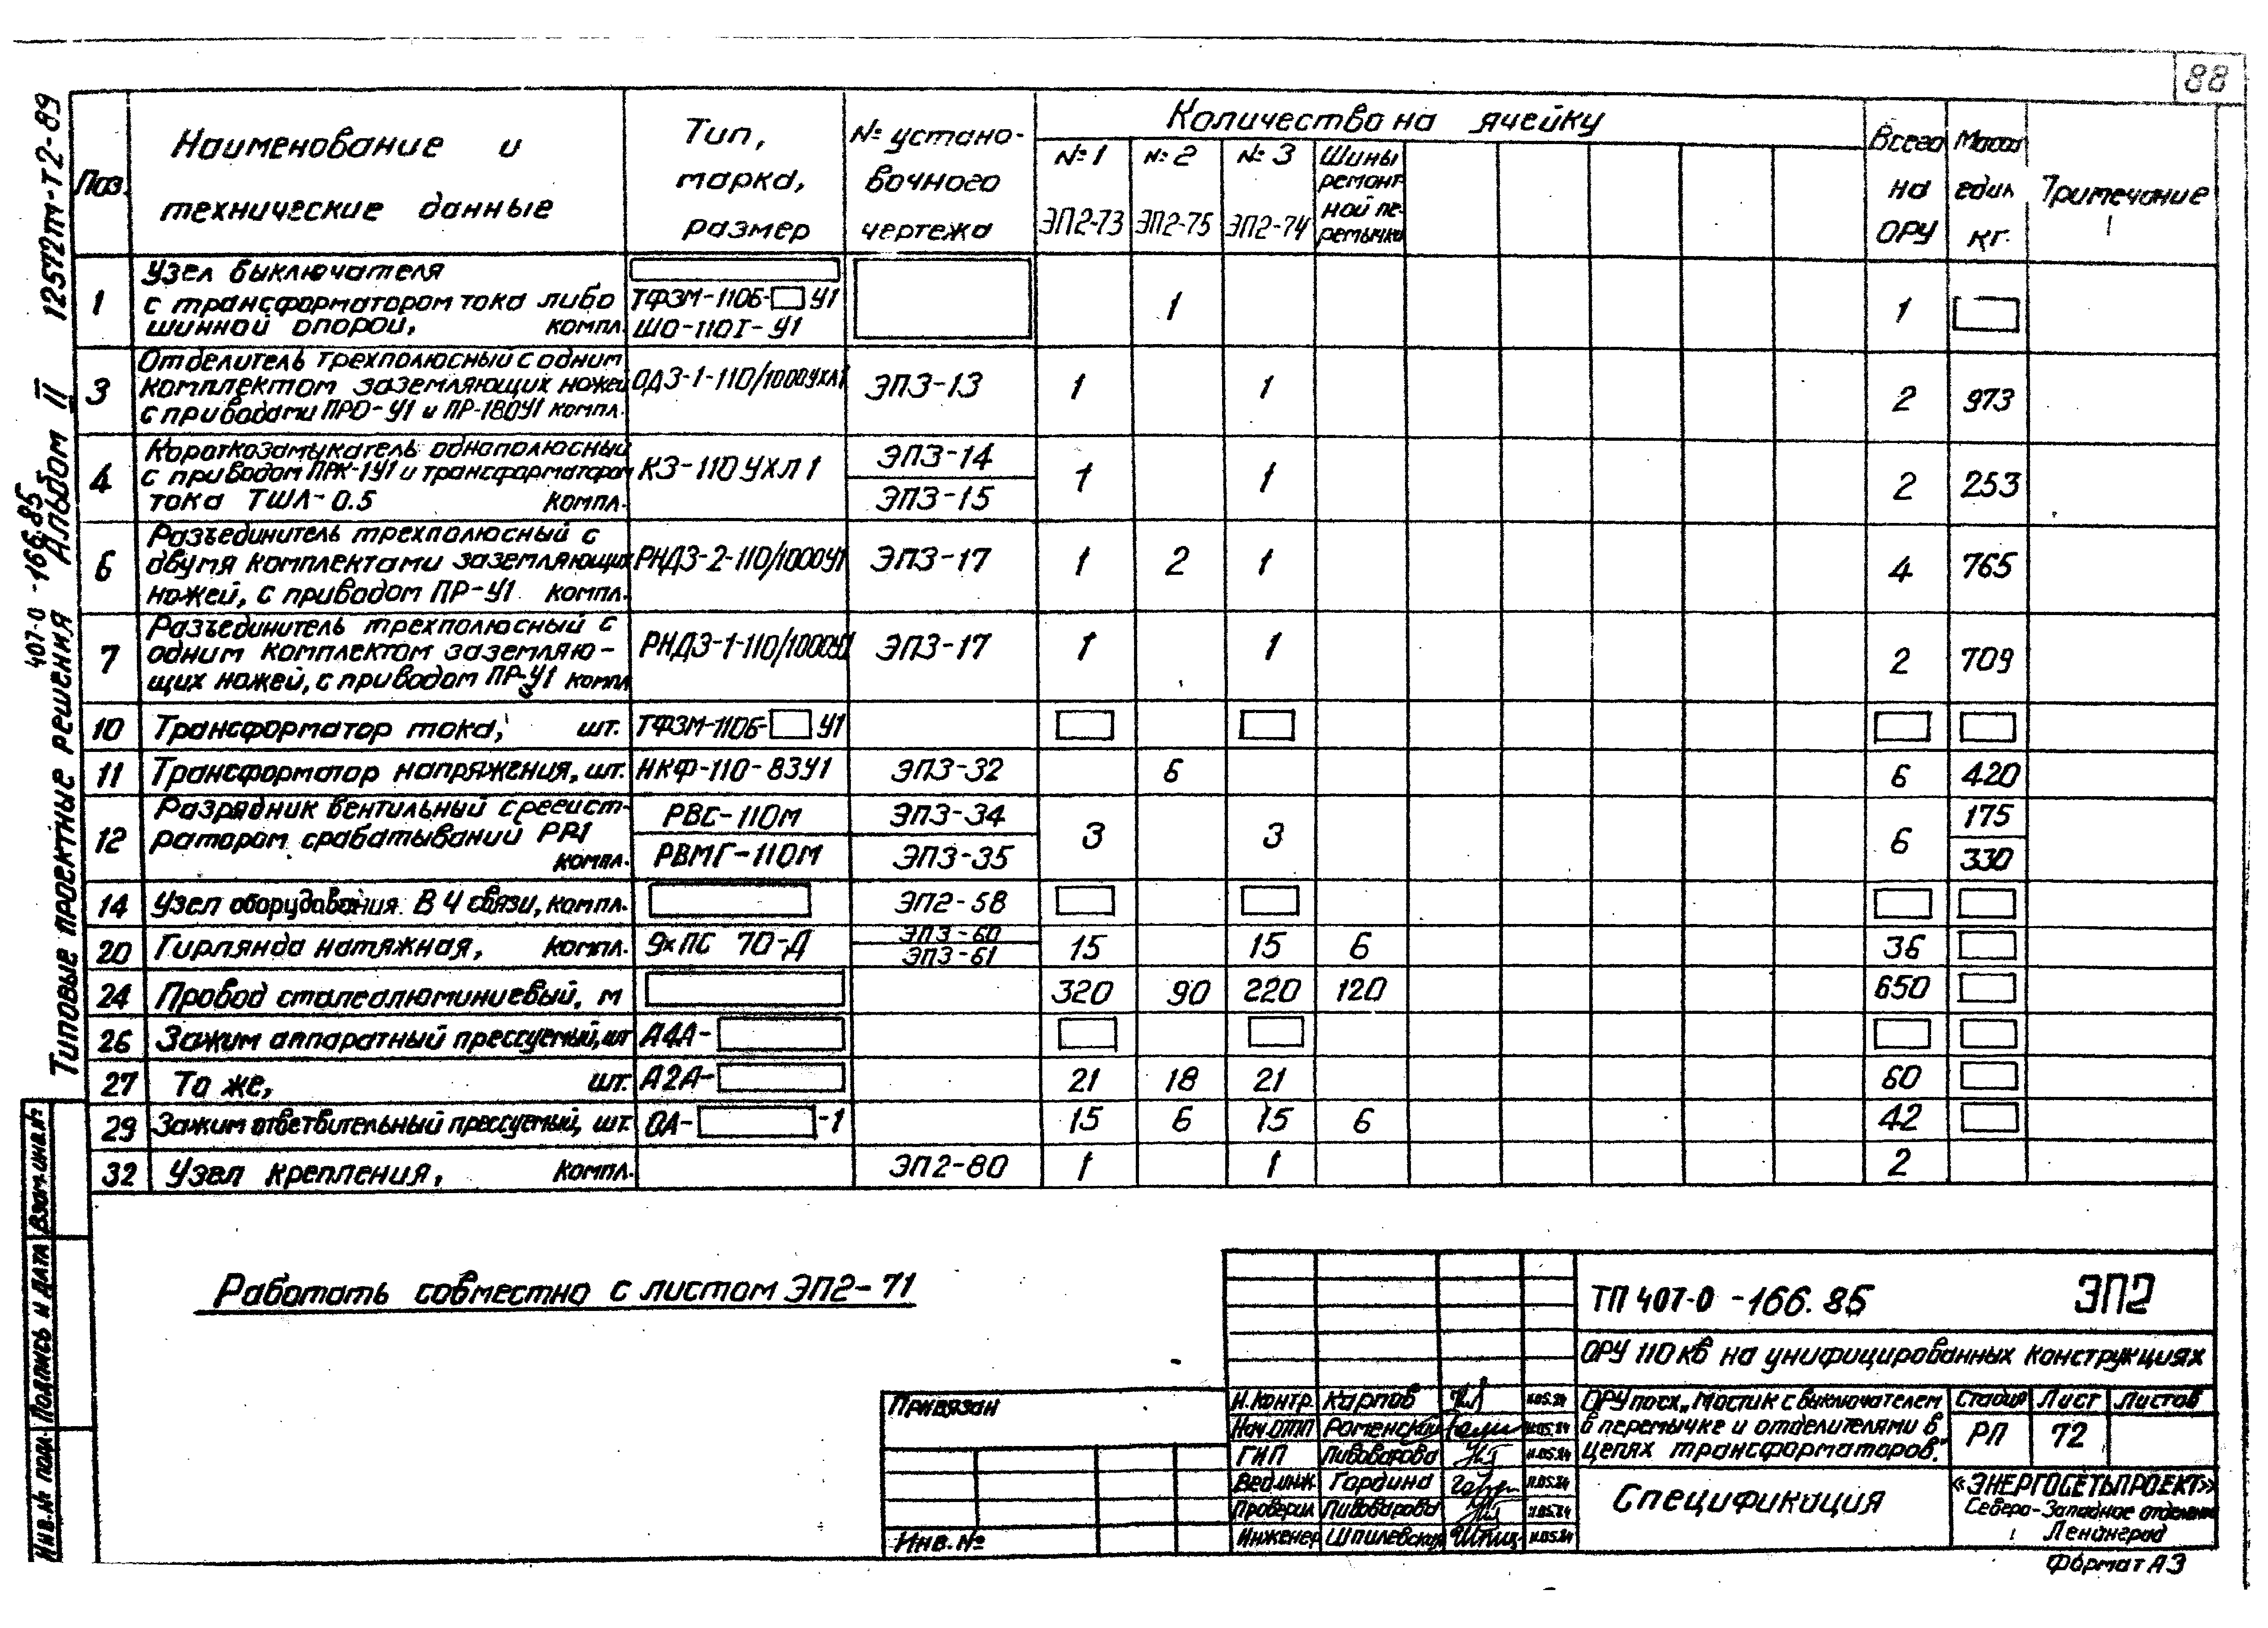 88
12572тм-Т2-89
407-0-166.85
Типовые проектные решения Альбом II
Поз.
Наименование и
технические данные
Тип,
марка,
размер
№ устано-
вочного
чертежа
Количество на ячейку
№1
ЭП2-73
№2
ЭП2-75
№3
ЭП2-74
Шины
ремонт-
ной пе-
ремычки
Всего
на
ОРУ
Масса
един
кг.
Примечание
1
Узел выключателя
с трансформатором тока либо
шинной опорой, компл.
ТФЗМ-110Б- У1
ШО-110I-У1
1
1
3
Отделитель трехполюсный с одним
комплектом заземляющих ножей
с приводами ПРО-У1 и ПР-180У1 компл.
ОДЗ-1-110/1000УХЛ1
ЭП3-13
1
1
2
973
4
Короткозамыкатель однополюсный
с приводом ПРК-1У1 и трансформатором
тока ТШЛ-0.5 компл.
КЗ-110УХЛ1
ЭП3-14
ЭП3-15
1
1
2
253
6
Разъединитель трехполюсный с
двумя комплектами заземляющих
ножей, с приводом ПР-У1 компл.
РНДЗ-2-110/1000У1
ЭП3-17
1
2
1
4
765
7
Разъединитель трехполюсный с
одним комплектом заземляю-
щих ножей, с приводом ПР-У1 компл
РНДЗ-1-110/1000У1
ЭП3-17
1
1
2
709
10 Трансформатор тока, шт. ТФЗМ-110Б- У1
11 Трансформатор напряжения, шт. НКФ-110-83У1 ЭП3-32 6 6 420
12
Разрядник вентильный с регист-
ратором срабатываний РР-1
компл.
РВС-110М
РВМГ-110М
ЭП3-34
ЭП3-35
3
3
6
175
330
14 Узел оборудования ВЧ связи, компл. ЭП2-58
20 Гирлянда натяжная, компл. 9хПС 70-Д
ЭП3-60
ЭП3-61
15 15 6 36
24 Провод сталеалюминиевый, м 320 90 220 120 650
26 Зажим аппаратный прессуемый, шт А4А-
27 То же, шт. А2А- 21 18 21 60
29 Зажим ответвительный прессуемый, шт. ОА- -1 15 6 15 6 42
32 Узел крепления, компл. ЭП2-80 1 1 2
Работать совместно с листом ЭП2-71
Взам.инв.№
Подпись и дата
Инв.№ подл.
Привязан
Инв.№
ТП 407-0-166.85 ЭП2
ОРУ 110кв на унифицированных конструкциях
Н.контр. Карпов 11.05.84
Нач.ОТП Роменский 11.05.84
ГИП Пивоварова 11.05.84
Вед.инж. Гордина 11.05.84
Проверил Пивоварова 11.05.84
Инженер Шпилевская 11.05.84
ОРУ по сх. „Мостик с выключателем
в перемычке и отделителями в
цепях трансформаторов."
Стадия Лист Листов
РП 72
Спецификация
«ЭНЕРГОСЕТЬПРОЕКТ»
Северо-Западное отделение
Ленинград
Формат А3